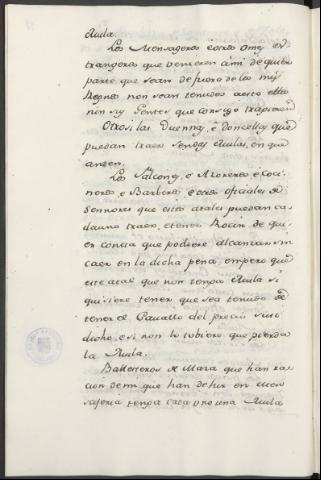 Mula.
Los Mensageros e otros omes es-
trangeros que vinieren a mi de quier
parte que sean de fuera de los mis
Regnos non sean tenudos a esto ellos
nin sus gentes que consigo traxieren
Otrosi las Duennas, e Doncellas que
puedan traer sendas Mulas, en que
anden.
Los Falcons, e Azoreros e Coci-
neros e Barberos e otros oficiales de
Sennores que estos atales puedan ca-
da uno traer, e tener Rocin de qui-
er contia que podiere alcanzar sin
caer en la dicha pena, empero que
este atal que non tenga Mula si
quisiere tener que sea tenudo de
tener el Cavallo del precio suso
dicho, e si non lo tobiere que pierda
la Mula.
Ballesteros de Maza que han ra-
cion de mi que han de ir en men-
sageria tenga cada uno una Mula